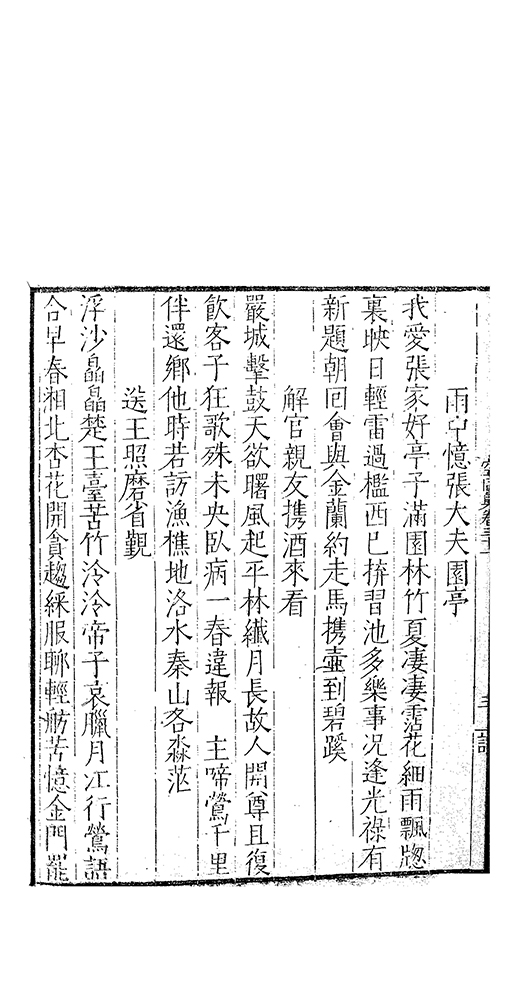 雨中憶張大夫園亭
我愛張家好亭子滿園林竹夏凄凄霑花細雨飄牕
裏映日輕雷過檻西巳拚習池多樂事况逢光祿有
新題朝回會與金蘭約走馬携壷到碧蹊
解官親友携酒來看
嚴城擊鼓天欲曙風起平林纎月長故人開尊且復
飲客子狂歌殊未央臥病一春違報 主啼鶯千里
伴還鄉他時若訪漁樵地洛水秦山各淼茫
送王照磨省觀
浮沙晶晶楚王臺苦竹泠泠帝子哀臘月江行鶯語
合早春湘北杏花開貪趨綵服聊輕舫苦憶金門罷